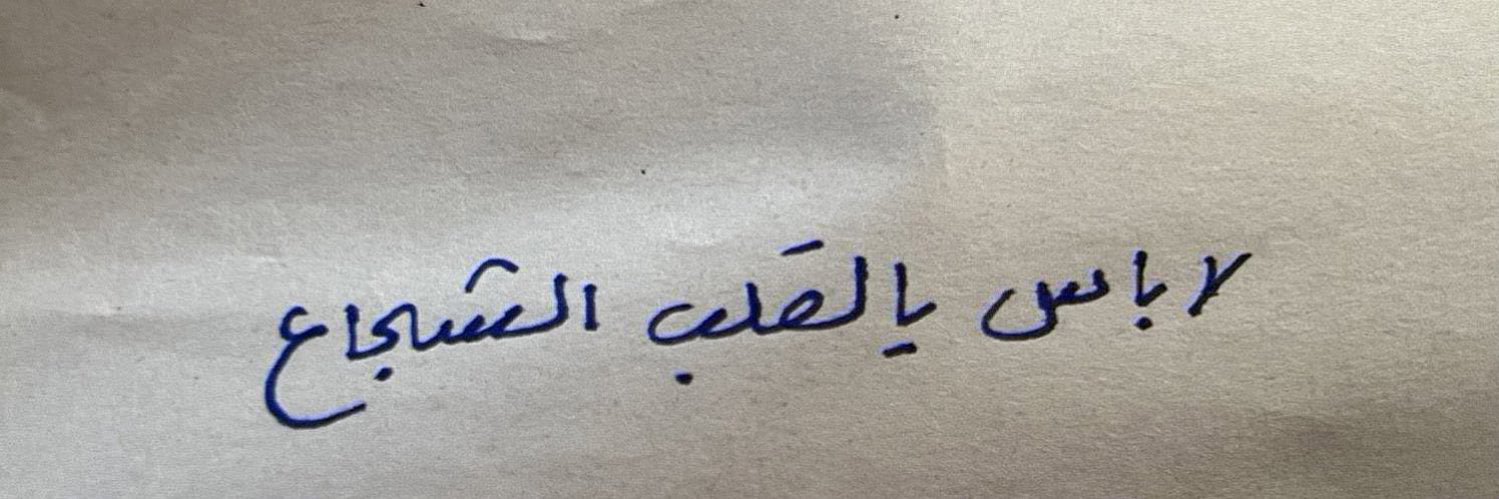 لا باس يا لقلب الشجاع